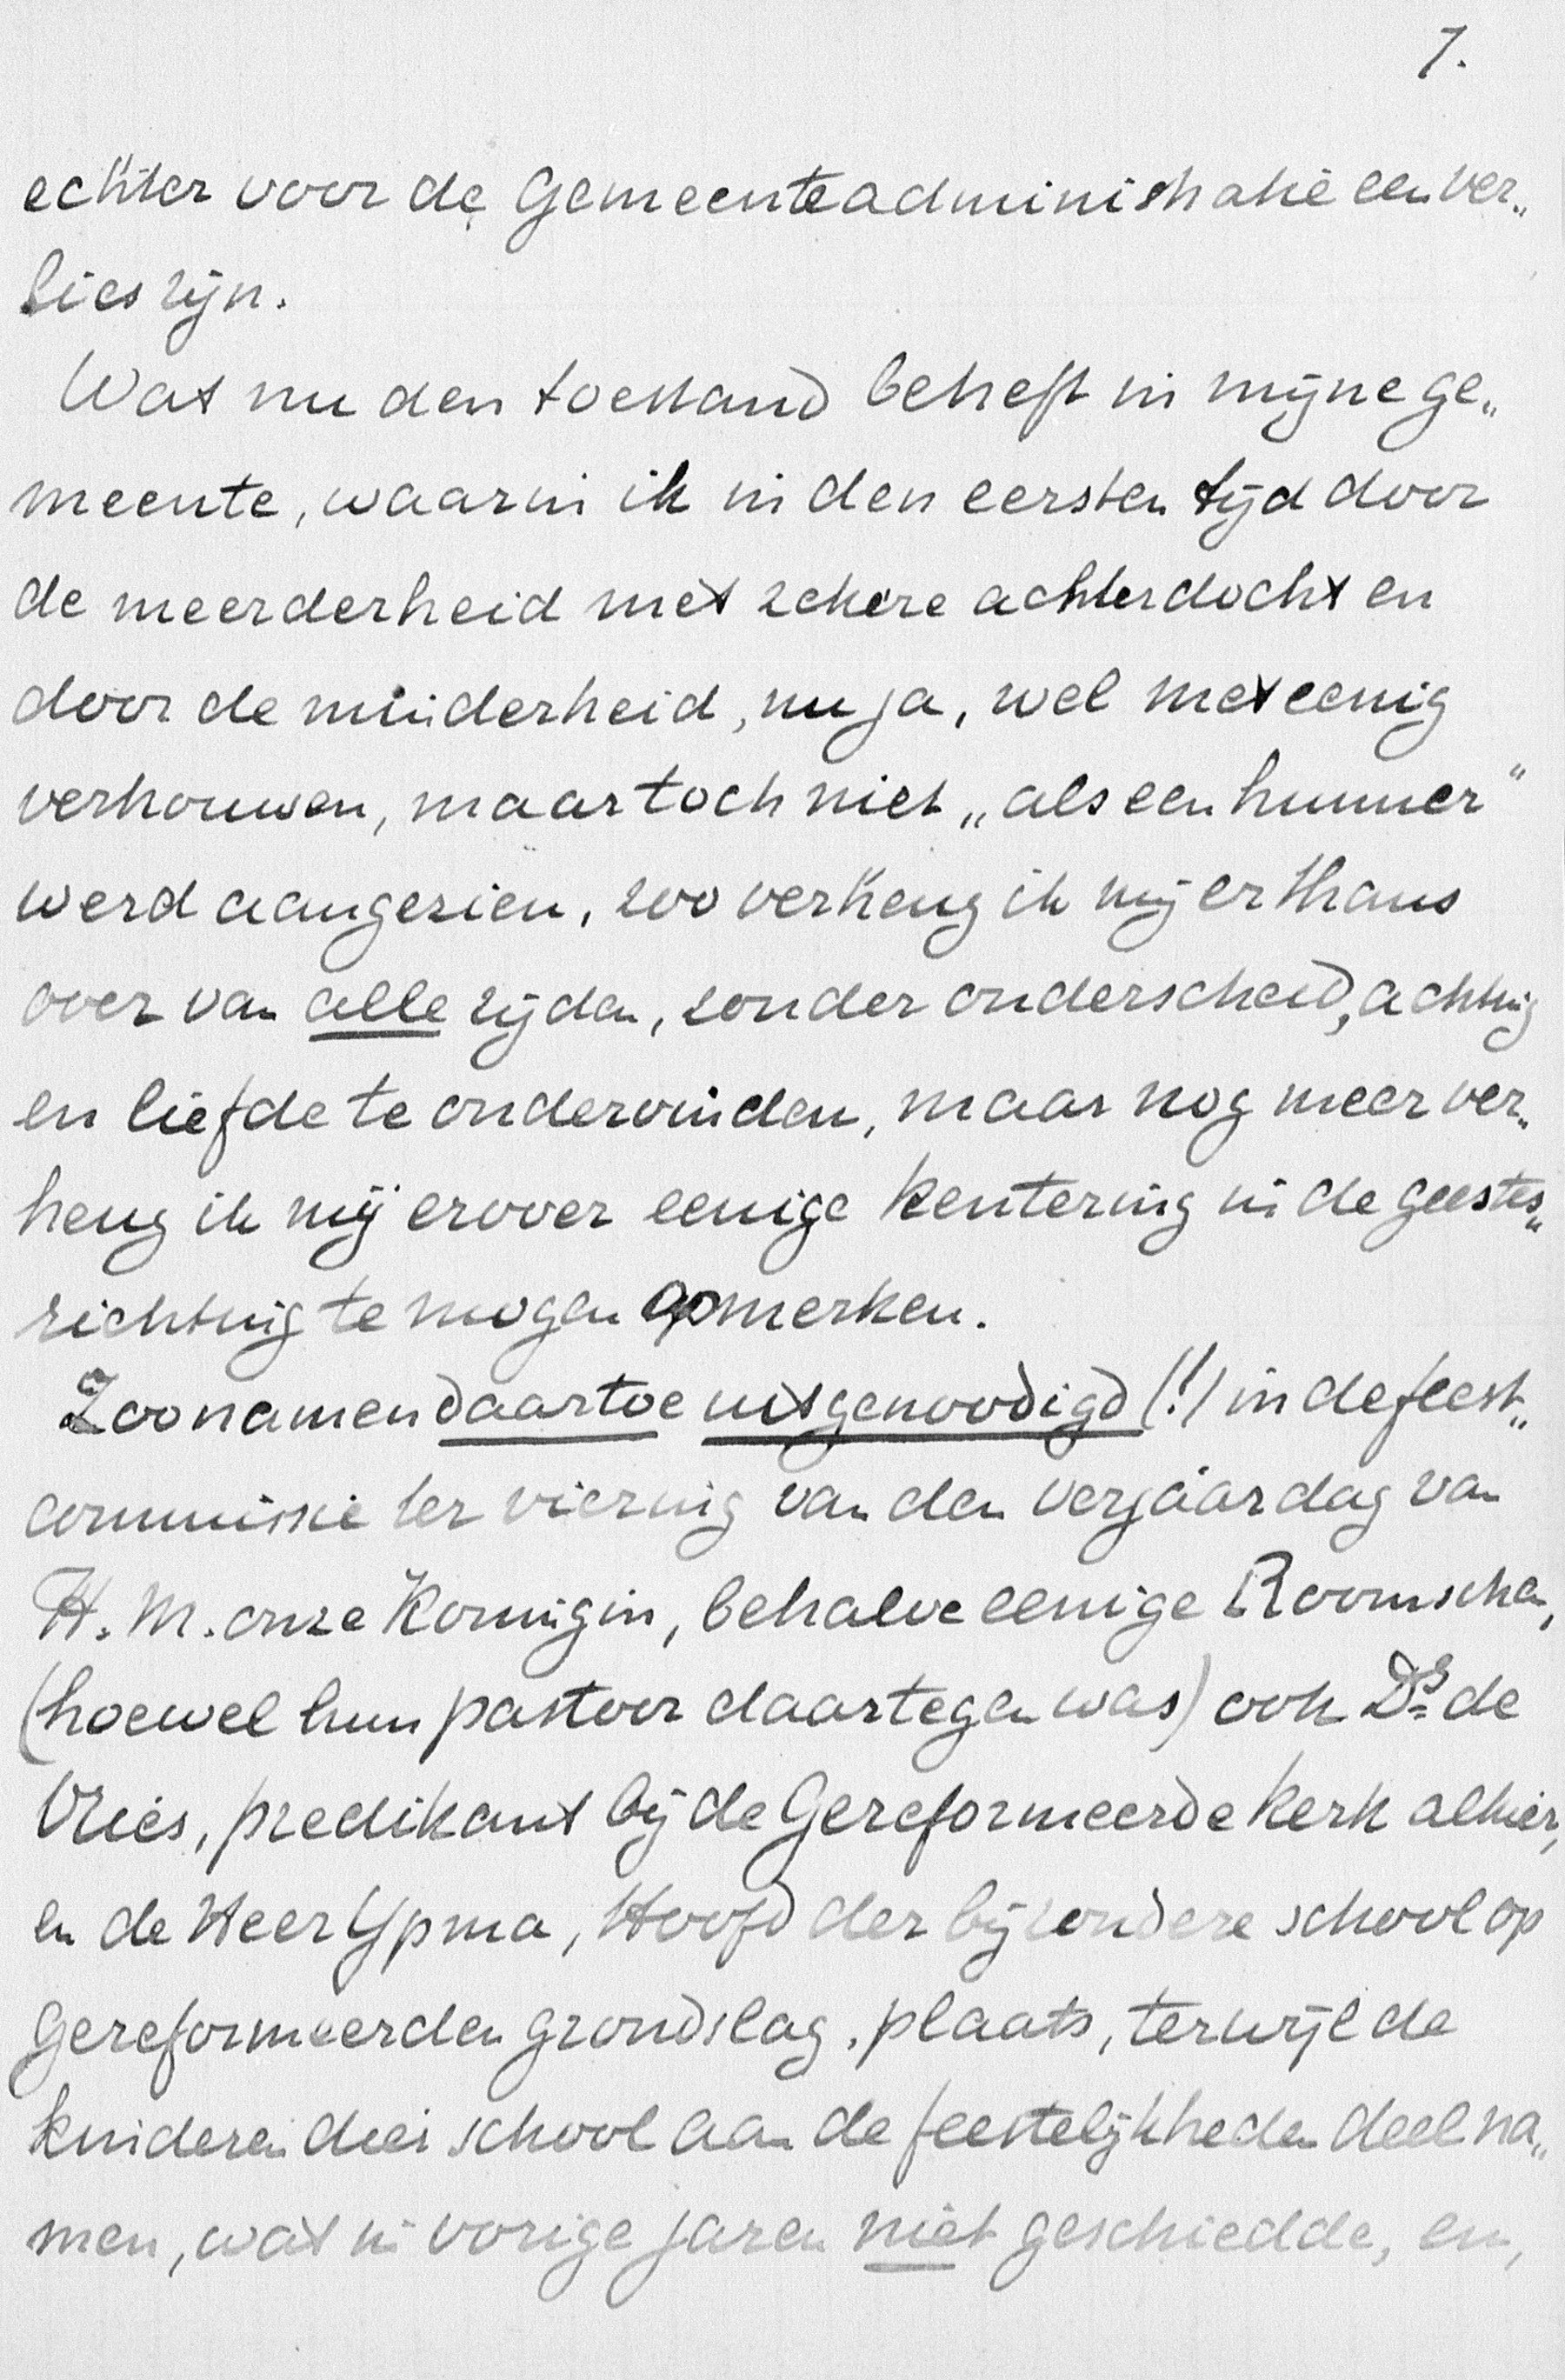 7.
echter voor de Gemeenteadministratie een ver„
lies zijn.
Wat nu den toestand betreft in mijne ge„
meente, waarin ik in den eersten tijd door
de meerderheid met zekere achterdocht en
door de minderheid, nu ja, wel met eenig
vertrouwen, maar toch niet „als een hunner"
werd aangezien, zoo verheug ik mij er thans
over van alle zijden, zonder onderscheid, achting
en liefde te ondervinden, maar nog meer ver„
heug ik mij erover eenige kentering in de geestes„
richting te mogen opmerken.
Zoo namen daartoe uitgenoodigd (!) in de feest„
commissie ter viering van den verjaardag van
H. M. onze Koningin, behalve eenige Roomschen,
(hoewel hun pastoor daartegen was) ook Ds de
Vries, predikant bij de Gereformeerde Kerk alhier,
en de Heer Ypma, Hoofd der bijzondere school op
Gereformeerden grondslag, plaats, terwijl de
kinderen dier school aan de feestelijkheden deel na„
men, wat in vorige jaren niet geschiedde, en,